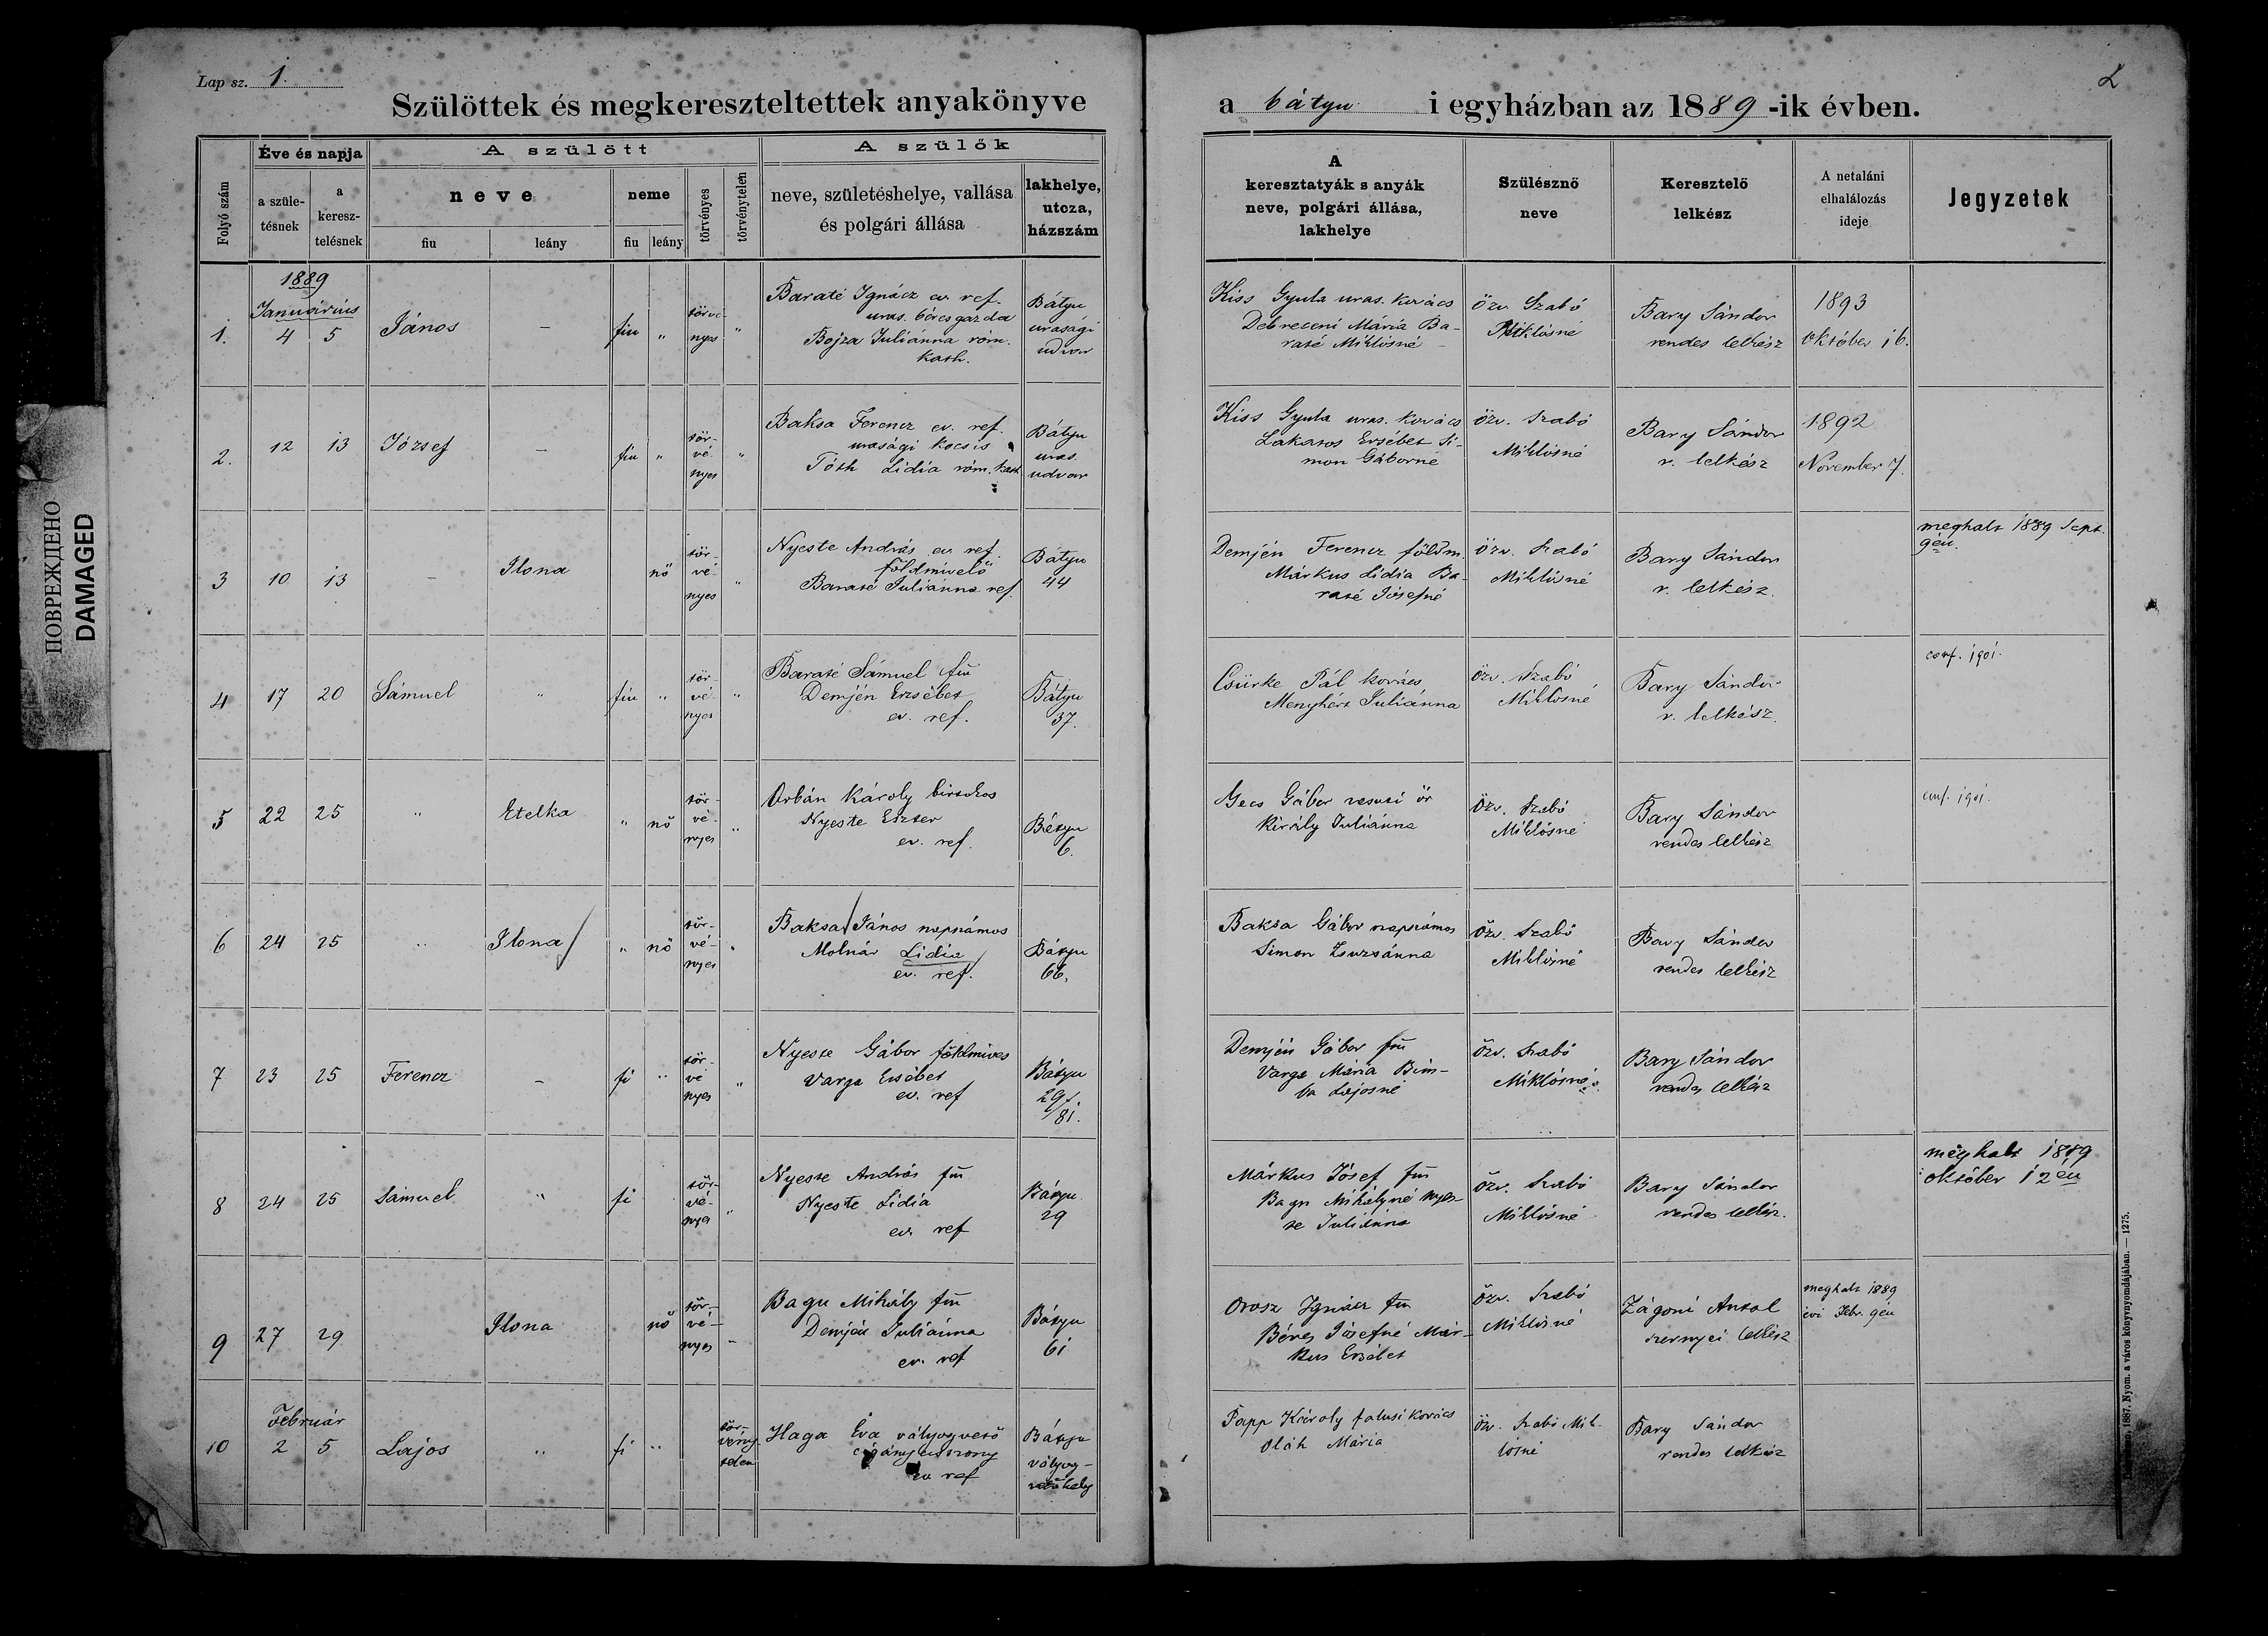 Lap sz. 1.
Szülöttek és megkereszteltettek anyakönyve
a bátyu i egyházban az 1889-ik évben.
2
ПОВРЕЖДЕНО
DAMAGED
Folyó szám
Éve és napja
a születésnek
a keresztelésnek
A szülött
neve
fiu
leány
neme
fiu
leány
törvényes
törvénytelen
A szülők
neve, születéshelye, vallása
és polgári állása
lakhelye,
utcza,
házszám
A
keresztatyák s anyák
neve, polgári állása,
lakhelye
Szülésznő
neve
Keresztelő
lelkész
A netaláni
elhalálozás
ideje
Jegyzetek
1889
Januárius
1. 4 5 János – fiu " törvényes "
Baraté Ignácz ev. ref.
uras. béresgazda
Bojza Juliánna róm.
kath.
Bátyu
urasági
udvar
Kiss Gyula uras. kovács
Debreceni Mária Ba-
raté Miklósné
özv. Szabó
Miklósné
Bary Sándor
rendes lelkész
1893
október 16.
2. 12 13 József – fiu " tör-
vé-
nyes "
Baksa Ferencz ev. ref.
urasági kocsis
Tóth Lidia róm. kath
Bátyu
uras.
udvar
Kiss Gyula uras. kovács
Lakatos Ersébet Si-
mon Gáborné
özv. Szabó
Miklósné
Bary Sándor
r. lelkész
1892
November 7.
3 10 13 – Ilona nő tör-
vé-
nyes "
Nyeste András ev. ref.
földmivelő
Baraté Juliánna ref.
Bátyu
44
Demjén Ferencz földm.
Márkus Lidia Ba-
raté Jósefné
özv. Szabó
Miklósné
Bary Sándor
r. lelkész.
meghalt 1889 Sept.
9én.
4 17 20 Sámuel " fiu " tör-
vé-
nyes "
Baraté Sámuel fm
Demjén Erzsébet
ev. ref.
Bátyu
37.
Csürke Pál kovács
Menyhért Juliánna
özv. Szabó
Miklósné
Bary Sándor
r. lelkész.
conf. 1901.
5 22 25 " Etelka " nő tör-
vé-
nyes "
Orbán Károly birtokos
Nyeste Eszter
ev. ref.
Bátyu
6.
Gecs Gábor vasuti őr
Király Juliánna
özv. Szabó
Miklósné
Bary Sándor
rendes lelkész
conf. 1901.
6 24 25 " Ilona " nő tör-
vé-
nyes "
Baksa János napszámos
Molnár Lidia
ev. ref.
Bátyu
66.
Baksa Gábor napszámos
Simon Zsuzsánna
özv. Szabó
Miklósné
Bary Sándor
rendes lelkész
7 23 25 Ferencz – fi " tör-
vé
nyes "
Nyeste Gábor földmives
Varga Ersébet
ev. ref
Bátyu
29/.
81.
Demjén Gábor fm
Varga Mária Bim-
ba Lajosné
özv. Szabó
Miklósné
Bary Sándor
rendes lelkész
8 24 25 Sámuel " fi tör-
vé-
nyes "
Nyeste András fm
Nyeste Lidia
ev. ref
Bátyu
29
Márkus Jósef fm
Bagu Mihályné Nyes-
te Juliánna
özv. Szabó
Miklósné
Bary Sándor
rendes lelkész.
meghalt 1889
október 12én
9 27 29 Ilona nő tör-
vé-
nyes –
Bagu Mihály fm
Demjén Juliánna
ev. ref
Bátyu
61
Orosz Ignácz fm
Béres Jósefné Már-
kus Ersébet
özv. Szabó
Miklósné
Zágoni Antal
szernyei lelkész
meghalt 1889
évi Febr. 9én
Február
10 2 5 Lajos " fi " tör-
vény-
telen
Haga Éva vályogvető
cigányasszony
ev ref
Bátyu
vályog-
vetőhely
Papp Károly falusi kovács
Oláh Mária
özv. Szabó Mik-
lósné
Bary Sándor
rendes lelkész
1887. Nyom. a város könyvnyomdájában. — 1275.